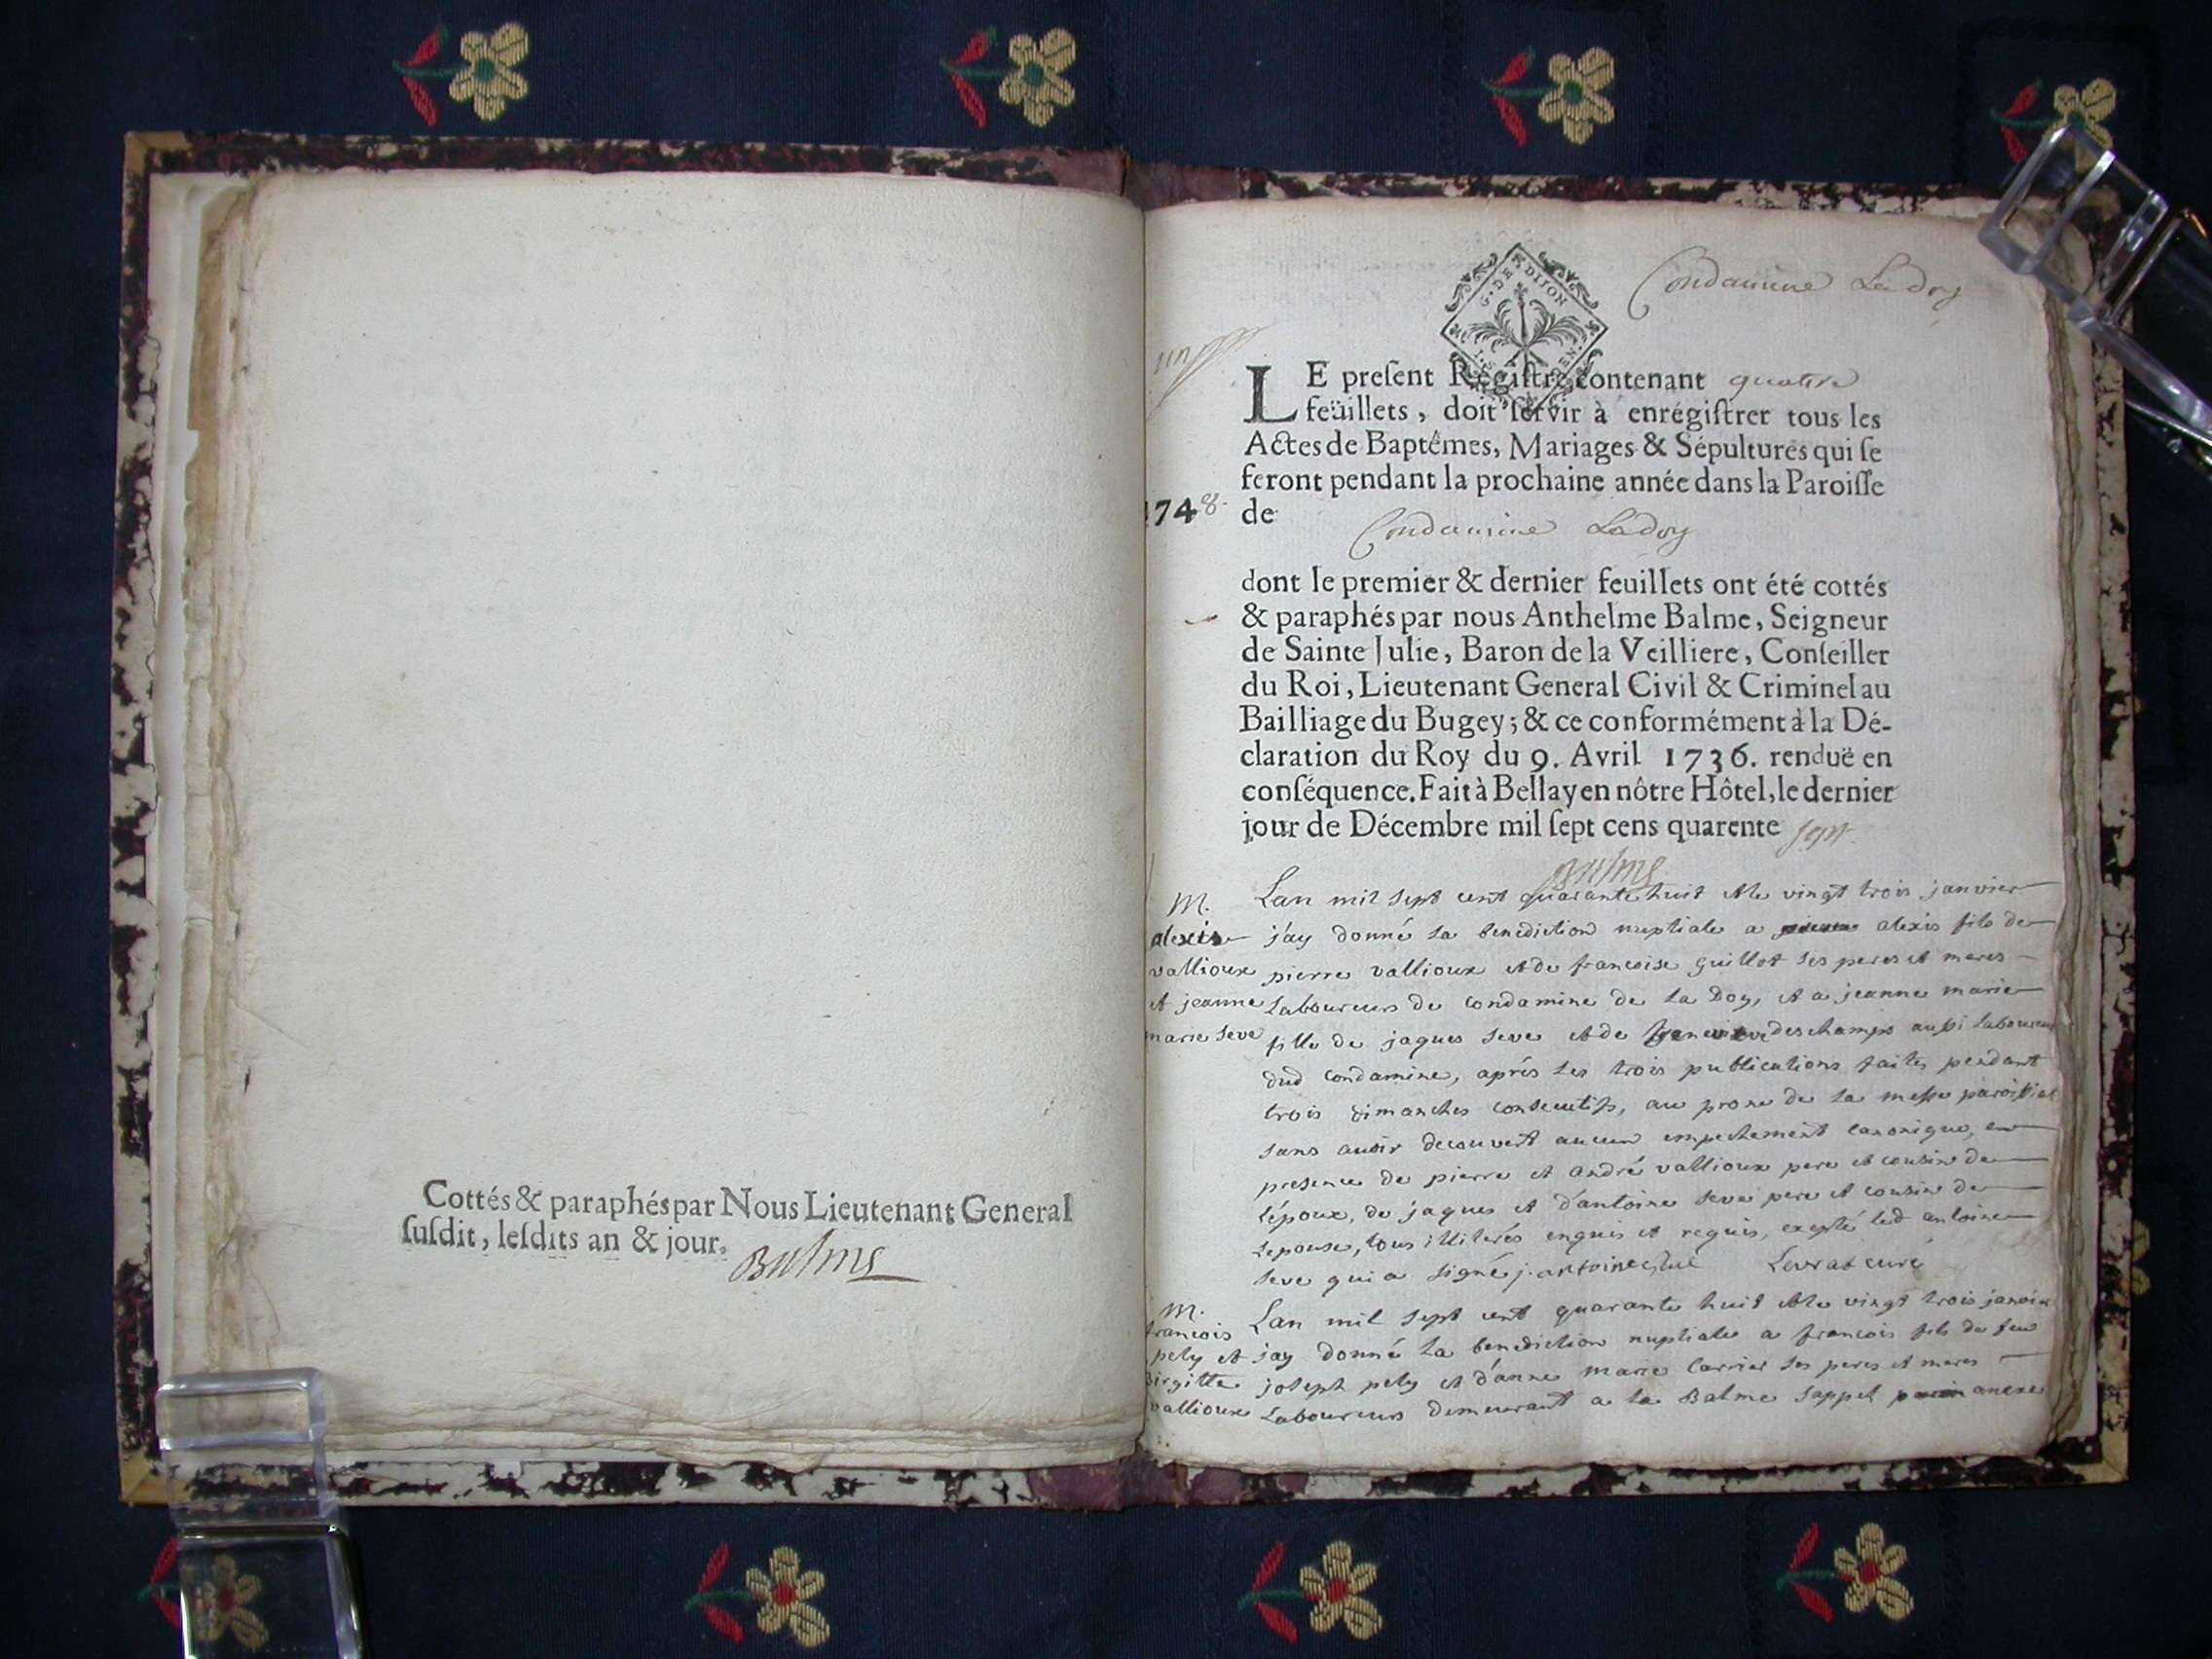 Cottés & paraphés par Nous Lieutenant General
ſuſdit, leſdits an & jour.
Balme
G. DE DIJON
Condamine Ladoy
LE preſent Régiſtre contenant quatre
feüillets, doit ſervir à enrégiſtrer tous les
Actes de Baptêmes, Mariages & Sépultures qui ſe
feront pendant la prochaine année dans la Paroiſſe
1748. de
Condamine Ladoy
dont le premier & dernier feuillets ont été cottés
& paraphés par nous Anthelme Balme, Seigneur
de Sainte Julie, Baron de la Veilliere, Conſeiller
du Roi, Lieutenant General Civil & Criminel au
Bailliage du Bugey; & ce conformément à la Dé-
claration du Roy du 9. Avril 1736. renduë en
conſéquence. Fait à Bellay en nôtre Hôtel, le dernier
jour de Décembre mil ſept cens quarente sept.
Balme
M.
alexis
vallioux
et jeanne
marie seve
Lan mil sept cent quarante huit et le vingt trois janvier
j'ay donné la benediction nuptiale a alexis fils de
pierre vallioux et de francoise guillot ses peres et meres
laboureurs de condamine de la Doy, et a jeanne marie
fille de jaques seve et de deschamps aussi laboureurs
dud condamine, aprés les trois publications faites pendant
trois dimanches consecutifs, au prone de la messe paroissial
sans avoir decouvert aucun empechement canonique, en
presence de pierre et andré vallioux pere et cousin de
l'époux, de jaques et d'antoine seve pere et cousin de
lepouse, tous illiterés enquis et requis, excepté led antoine
seve qui a signé j. antoine seve Levrat curé
M.
francois
pely et
Birgitte
vallioux
Lan mil sept cent quarante huit et le vingt trois janvier
jay donné la benediction nuptiale a francois fils de feu
joseph pely et d'anne marie Carrier ses peres et meres
Laboureurs demeurant a la Balme sappel anexe